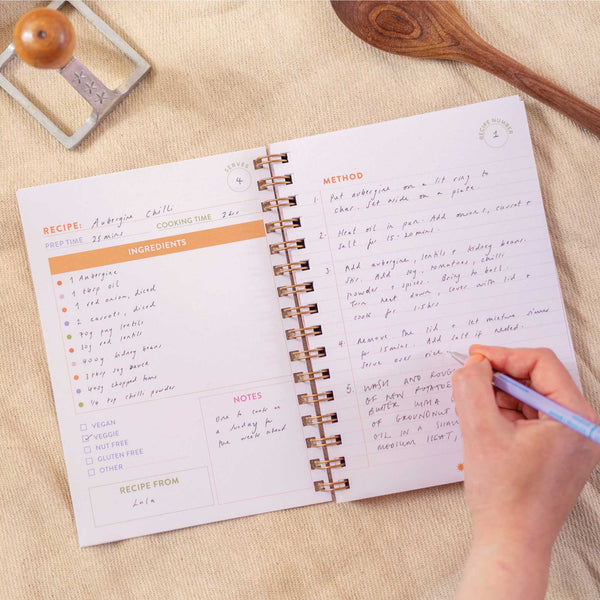 SERVES
4
RECIPE: Aubergine Chilli
PREP TIME 25 mins COOKING TIME 2 hrs
INGREDIENTS
1 Aubergine
1 tbsp oil
1 red onion, diced
2 carrots, diced
70g puy lentils
30g red lentils
400g kidney beans
1 tbsp soy sauce
400g chopped toms
1/4 tsp chilli powder
VEGAN
VEGGIE
NUT FREE
GLUTEN FREE
OTHER
RECIPE FROM
Lula
NOTES
One to cook on
a Sunday for
the week ahead
RECIPE NUMBER
1
METHOD
1. Put aubergine on a lit ring to
char. Set aside on a plate.
2. Heat oil in pan. Add onion, carrot +
salt for 15-20mins.
3. Add aubergine, lentils + kidney beans.
Stir. Add soy, tomatoes, chilli
powder + spices. Bring to boil.
Turn heat down, cover with lid +
cook for 1.5hrs
4. Remove the lid + let mixture simmer
for 15mins. Add salt if needed.
Serve over rice
5. WASH AND ROUG
OF NEW POTATO
BUTTER WITH A
OF GROUNDNUT
OIL IN A
MEDIUM HEAT,